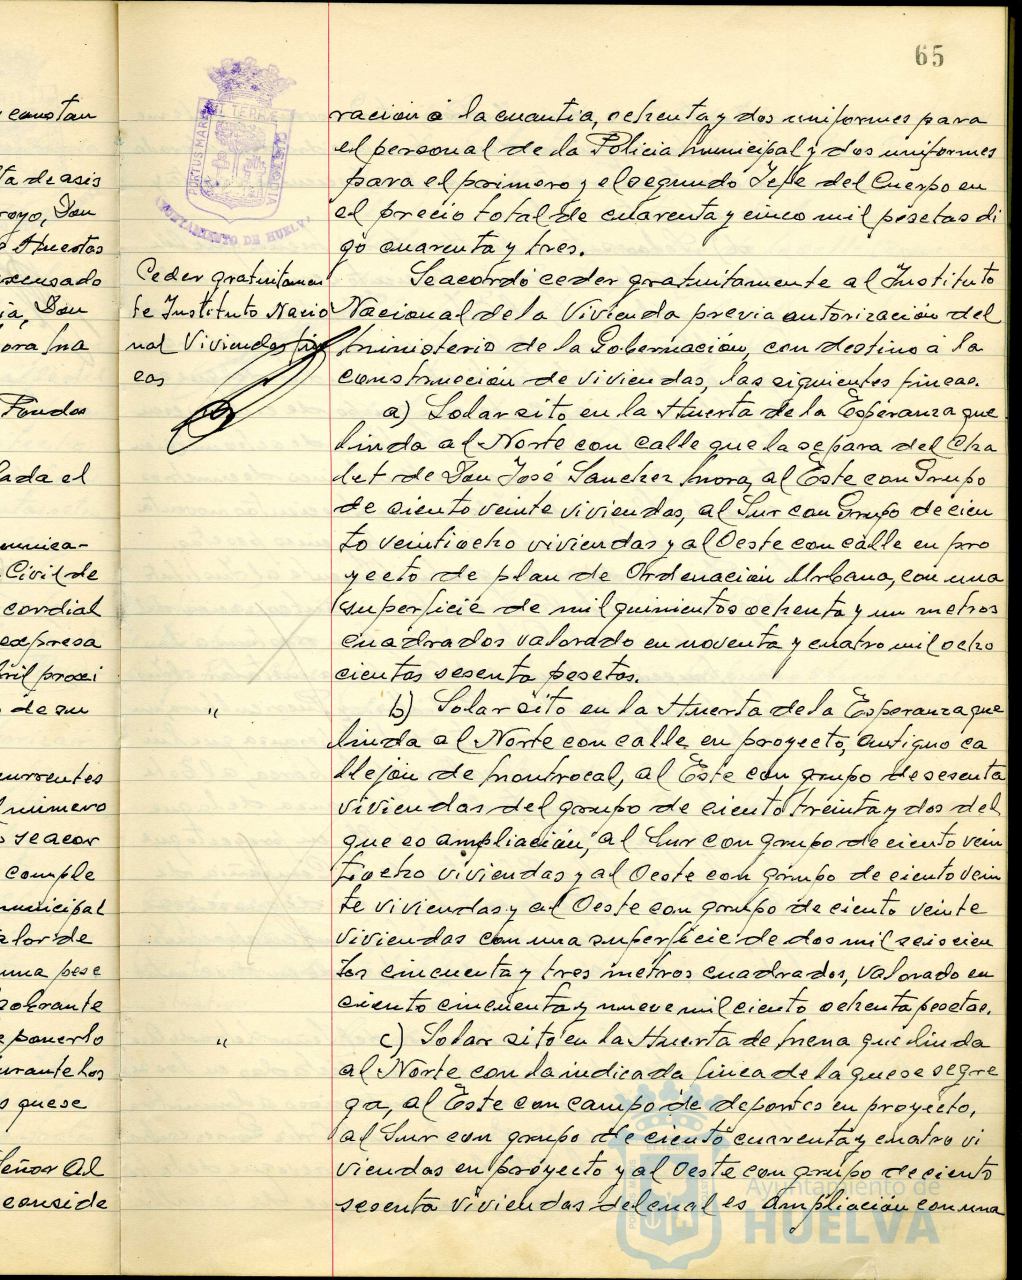 65
constan
ta de asis
royo, Don
Huertas
excusado
ia, Don
ora Ina
Fondos
lada el
unica-
Civil de
cordial
expresa
bril proxi
de su
currentes
número
seacor
comple
municipal
alor de
una pese
sobrante
ponerlo
durante los
s quese
Señor Al
conside
PORTUS MARIS ET TERRÆ CUSTODIA
AYUNTAMIENTO DE HUELVA
Ceder gratuitamen
te Instituto Nacio
nal Viviendas fin
cas
"
"
ración á la cuantia, ochenta y dos uniformes para
el personal de la Policia Municipal y dos uniformes
para el primero y el segundo Jefe del Cuerpo en
el precio total de cuarenta y cinco mil pesetas di
go cuarenta y tres.
Seacordó ceder gratuitamente al Instituto
Nacional de la Vivienda previa autorización del
Ministerio de la Gobernación, con destino á la
construcción de viviendas, las siguientes fincas.
a) Solar sito en la Huerta de la Esperanza que
linda al Norte con calle que la separa del Cha
let de Don José Sanchez Mora, al Este con Grupo
de ciento veinte viviendas, al Sur con Grupo de cien
to veintiocho viviendas y al Oeste con calle en pro
yecto de plan de Ordenación Urbana, con una
superficie de mil quinientos ochenta y un metros
cuadrados valorado en noventa y cuatro mil ocho
cientas sesenta pesetas.
b) Solar sito en la Huerta de la Esperanza que
linda al Norte con calle en proyecto, antiguo ca
llejón de Montrocal, al Este con grupo de sesenta
viviendas del grupo de ciento treinta y dos del
que es ampliación, al Sur con grupo de ciento vein
tiocho viviendas y al Oeste con grupo de ciento vein
te viviendas y al Oeste con grupo de ciento veinte
viviendas con una superficie de dos mil seiscien
tos cincuenta y tres metros cuadrados, valorado en
ciento cincuenta y nueve mil ciento ochenta pesetas.
c) Solar sito en la Huerta de Mena que linda
al Norte con la indicada finca de la que se segre
ga, al Este con campo de deportes en proyecto,
al Sur con grupo de ciento cuarenta y cuatro vi
viendas en proyecto y al Oeste con grupo de ciento
sesenta viviendas del cual es ampliación con una
Ayuntamiento de
HUELVA